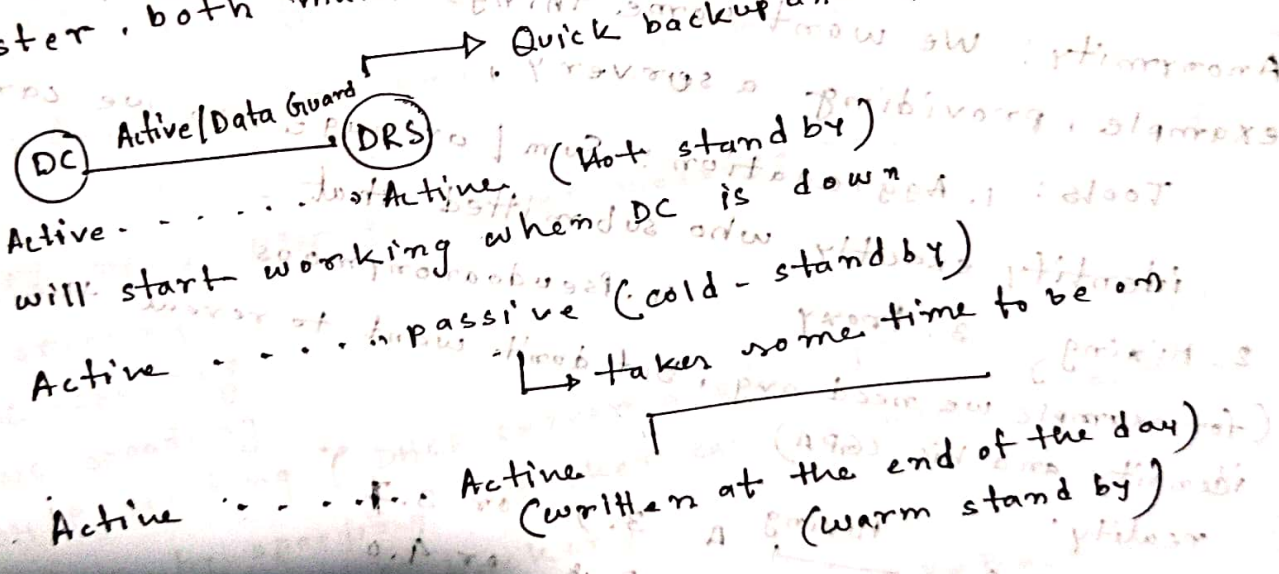 ster, both
Quick backup
Active/Data Guard
DC
DRS
Active ...... Active (Hot stand by)
will start working when DC is down.
Active ..... passive (cold - stand by)
takes some time to be on
Active ..... Active
(written at the end of the day)
(warm stand by)